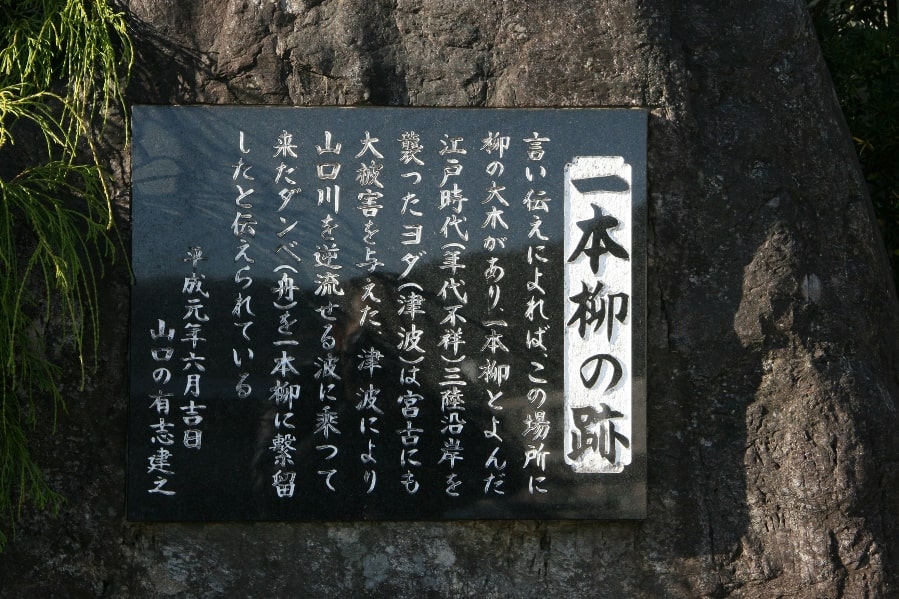 一本柳の跡
言い伝えによれば、この場所に
柳の大木があり、一本柳とよんだ
江戸時代(年代不祥)三陸沿岸を
襲ったヨダ(津波)は宮古にも
大被害を与えた、津波により
山口川を逆流せる波に乗って
来たダンベ(舟)を一本柳に繋留
したと伝えられている
平成元年六月吉日
山口の有志建之